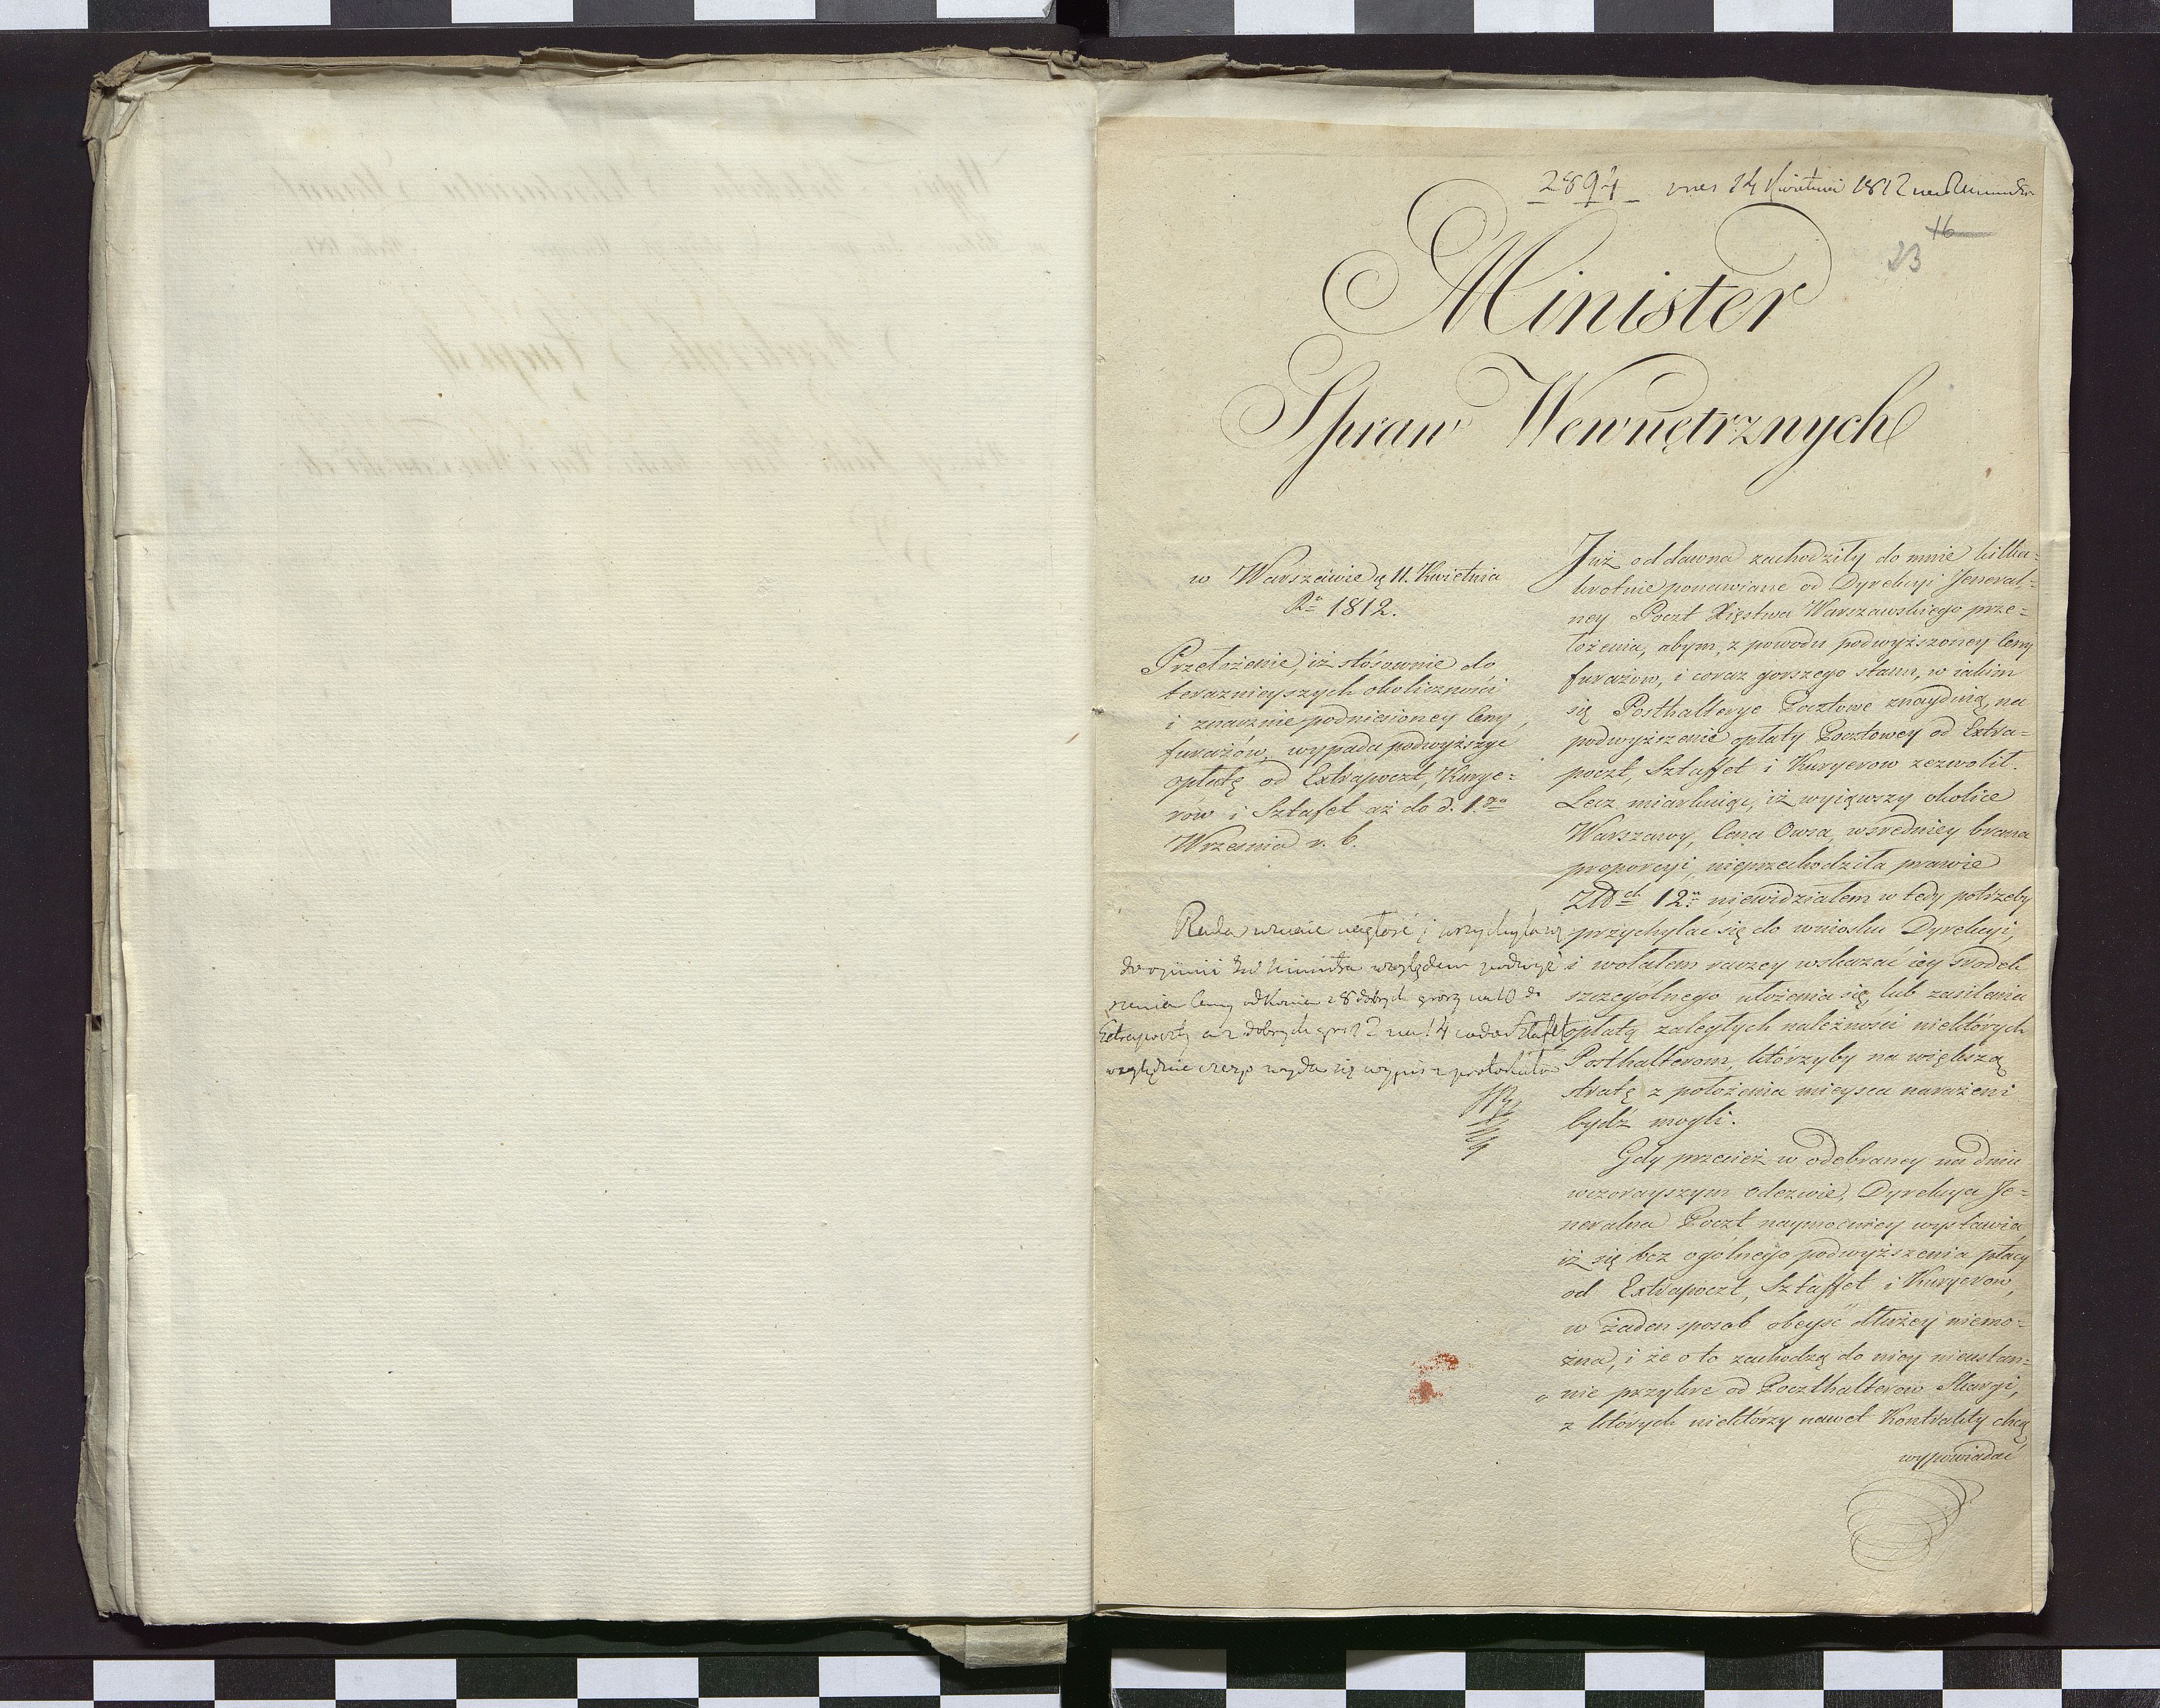 2894 wnes 14 Kwietnia 1812
16
23
Minister
Spraw Wewnętrznych
w Warszawie d. 11. Kwietnia
Ro 1812.
Przełożenie, iż stósownie do
teraznieyszych okoliczności
i znacznie podniesioney Ceny
furażów, wypada podwyższyć
opłatę od Extrapoczt, Kurye=
rów i Sztafet aż do d. 1go
Września r. b.
Rada uznaie nagłość i przychyla się
do opinii JW Ministra względem podwyż
szenia Ceny od Konia z 8 dobrych groszy na 10 do
Extrapoczty a z dobrych gr 12 na 14 co do Sztafet
względnie czego wyda się wypis z protokułu
Już oddawna zachodziły do mnie kilka=
krotnie ponawiane od Dyrekcyi Jeneral=
ney Poczt Xięstwa Warszawskiego prze=
łożenia, abym, z powodu podwyższoney Ceny
furażow, i coraz gorszego stanu, w iakim
się Posthalterye Pocztowe znayduią, na
podwyższenie opłaty Pocztowey od Extra=
poczt, Sztaffet i Kuryerow zezwolił.
Lecz miarkuiąc, iż wyiąwszy okolice
Warszawy, Cena Owsa, wsredniey brana
proporcyi, nieprzechodziła prawie
Złch 12. niewidziałem wtedy potrzeby
przychylać się do wniosku Dyrekcyi,
i wolałem raczey wskazać iey srodek
szczególnego ułożenia się, lub zasilenia
opłatą zaległych należności niektórych
Posthalterom, którzyby na większą
stratę z położenia mieysca narażeni
bydź mogli.
Gdy przecież w odebraney na dniu
wczorayszym odezwie, Dyrekcya Je=
neralna Poczt naymocniey wystawia
iż się bez ogólnego podwyższenia płacy
od Extrapoczt, Sztaffet i Kuryerow,
w żaden sposob obeyść dłużey niemo=
żna, i że o to zachodzą do niey nieustan=
nie przykre od Poczthalterow Skargi,
z których niektórzy nawet Kontrakty chcą
wypowiadać